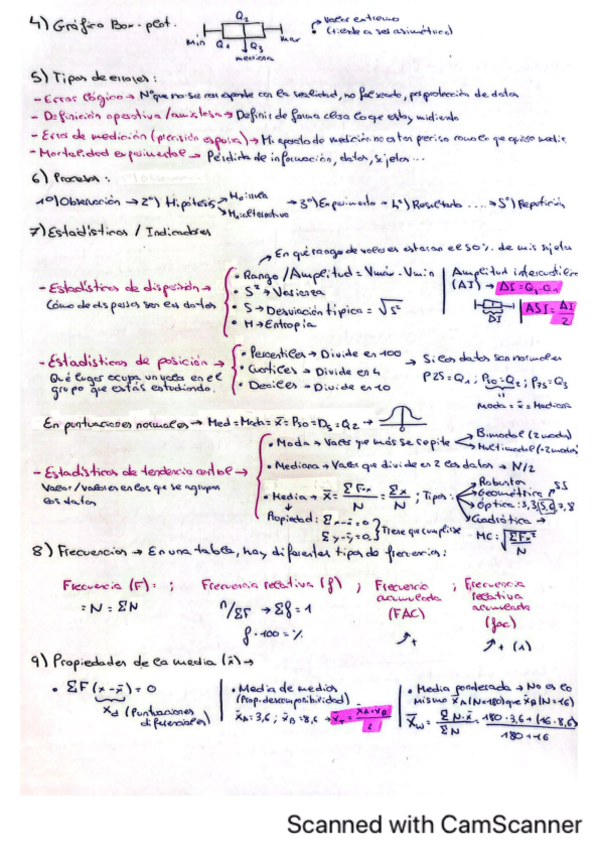 4) Gráfico Box-plot.
Q2
Min Q1 Q3 max
mediana
Valor extremo
(tiende a ser asimétrico)
5) Tipos de errores:
- Error lógico → Nº que no se corresponde con la realidad, no falseado, por protección de datos
- Definición operativa / → Definir de forma clara lo que estoy midiendo
- Error de medición (precisión espuria) → Mi aparato de medición no es tan preciso como lo que quiero medir
- Mortalidad experimental → Pérdida de información, datos, sujetos...
6) Proceso:
1º) Observación → 2º) Hipótesis → 3º) Experimento → 4º) Resultado .... → 5º) Repetición
H0 nula
H1 alternativa
7) Estadísticos / Indicadores
En qué rango de valores estarán el 50% de mis sujetos
- Estadísticos de dispersión →
Cómo de dispersos son los datos
• Rango / Amplitud = Vmáx - Vmin
• S² → Varianza
• S → Desviación típica = √S²
• H → Entropía
Amplitud intercuartílica
(AI) → AI = Q3 - Q1
AI
ASI = AI/2
- Estadísticos de posición →
Qué lugar ocupa un valor en el
grupo que estás estudiando.
• Percentiles → Divide en 100
• Cuartiles → Divide en 4
• Deciles → Divide en 10
→ Si los datos son normales
P25 = Q1; P50 = Q2; P75 = Q3
Moda = x̄ = Mediana
En puntuaciones normales → Med = Moda = x̄ = P50 = D5 = Q2 →
- Estadísticos de tendencia central →
Valor/valores en los que se agrupan
los datos
• Moda → Valor que más se repite
Bimodal (2 modas)
Multimodal (+2 modas)
• Mediana → Valor que divide en 2 los datos → N/2
• Media → x̄ = ΣFx/N = Σx/N; Tipos:
Robusta
Geométrica
5,5
Óptica: 3,3|5,6|7,8
Cuadrática →
MC: √ΣFx²/N
Propiedad: Σx-x̄ = 0
Σy-ȳ = 0
Tiene que cumplirse
8) Frecuencias → En una tabla, hay diferentes tipos de frecuencias:
Frecuencia (F): ; Frecuencia relativa (f) ; Frecuencia acumulada (FAC) ; Frecuencia relativa acumulada (fac)
= N = ΣN
n/ΣF → Σf = 1
f · 100 = %
+
+ (1)
9) Propiedades de la media (x̄) →
• ΣF(x-x̄) = 0
xd (Puntuaciones
diferenciales)
• Media de medias
(Prop. descomponibilidad)
x̄A = 3,6; x̄B = 8,6 → x̄T = x̄A + x̄B / 2
• Media ponderada → No es lo
mismo x̄A (N=180) que x̄B (N=16)
x̄w = ΣN·x̄/ΣN = 180·3,6 + (16·8,6)/180+16
Scanned with CamScanner